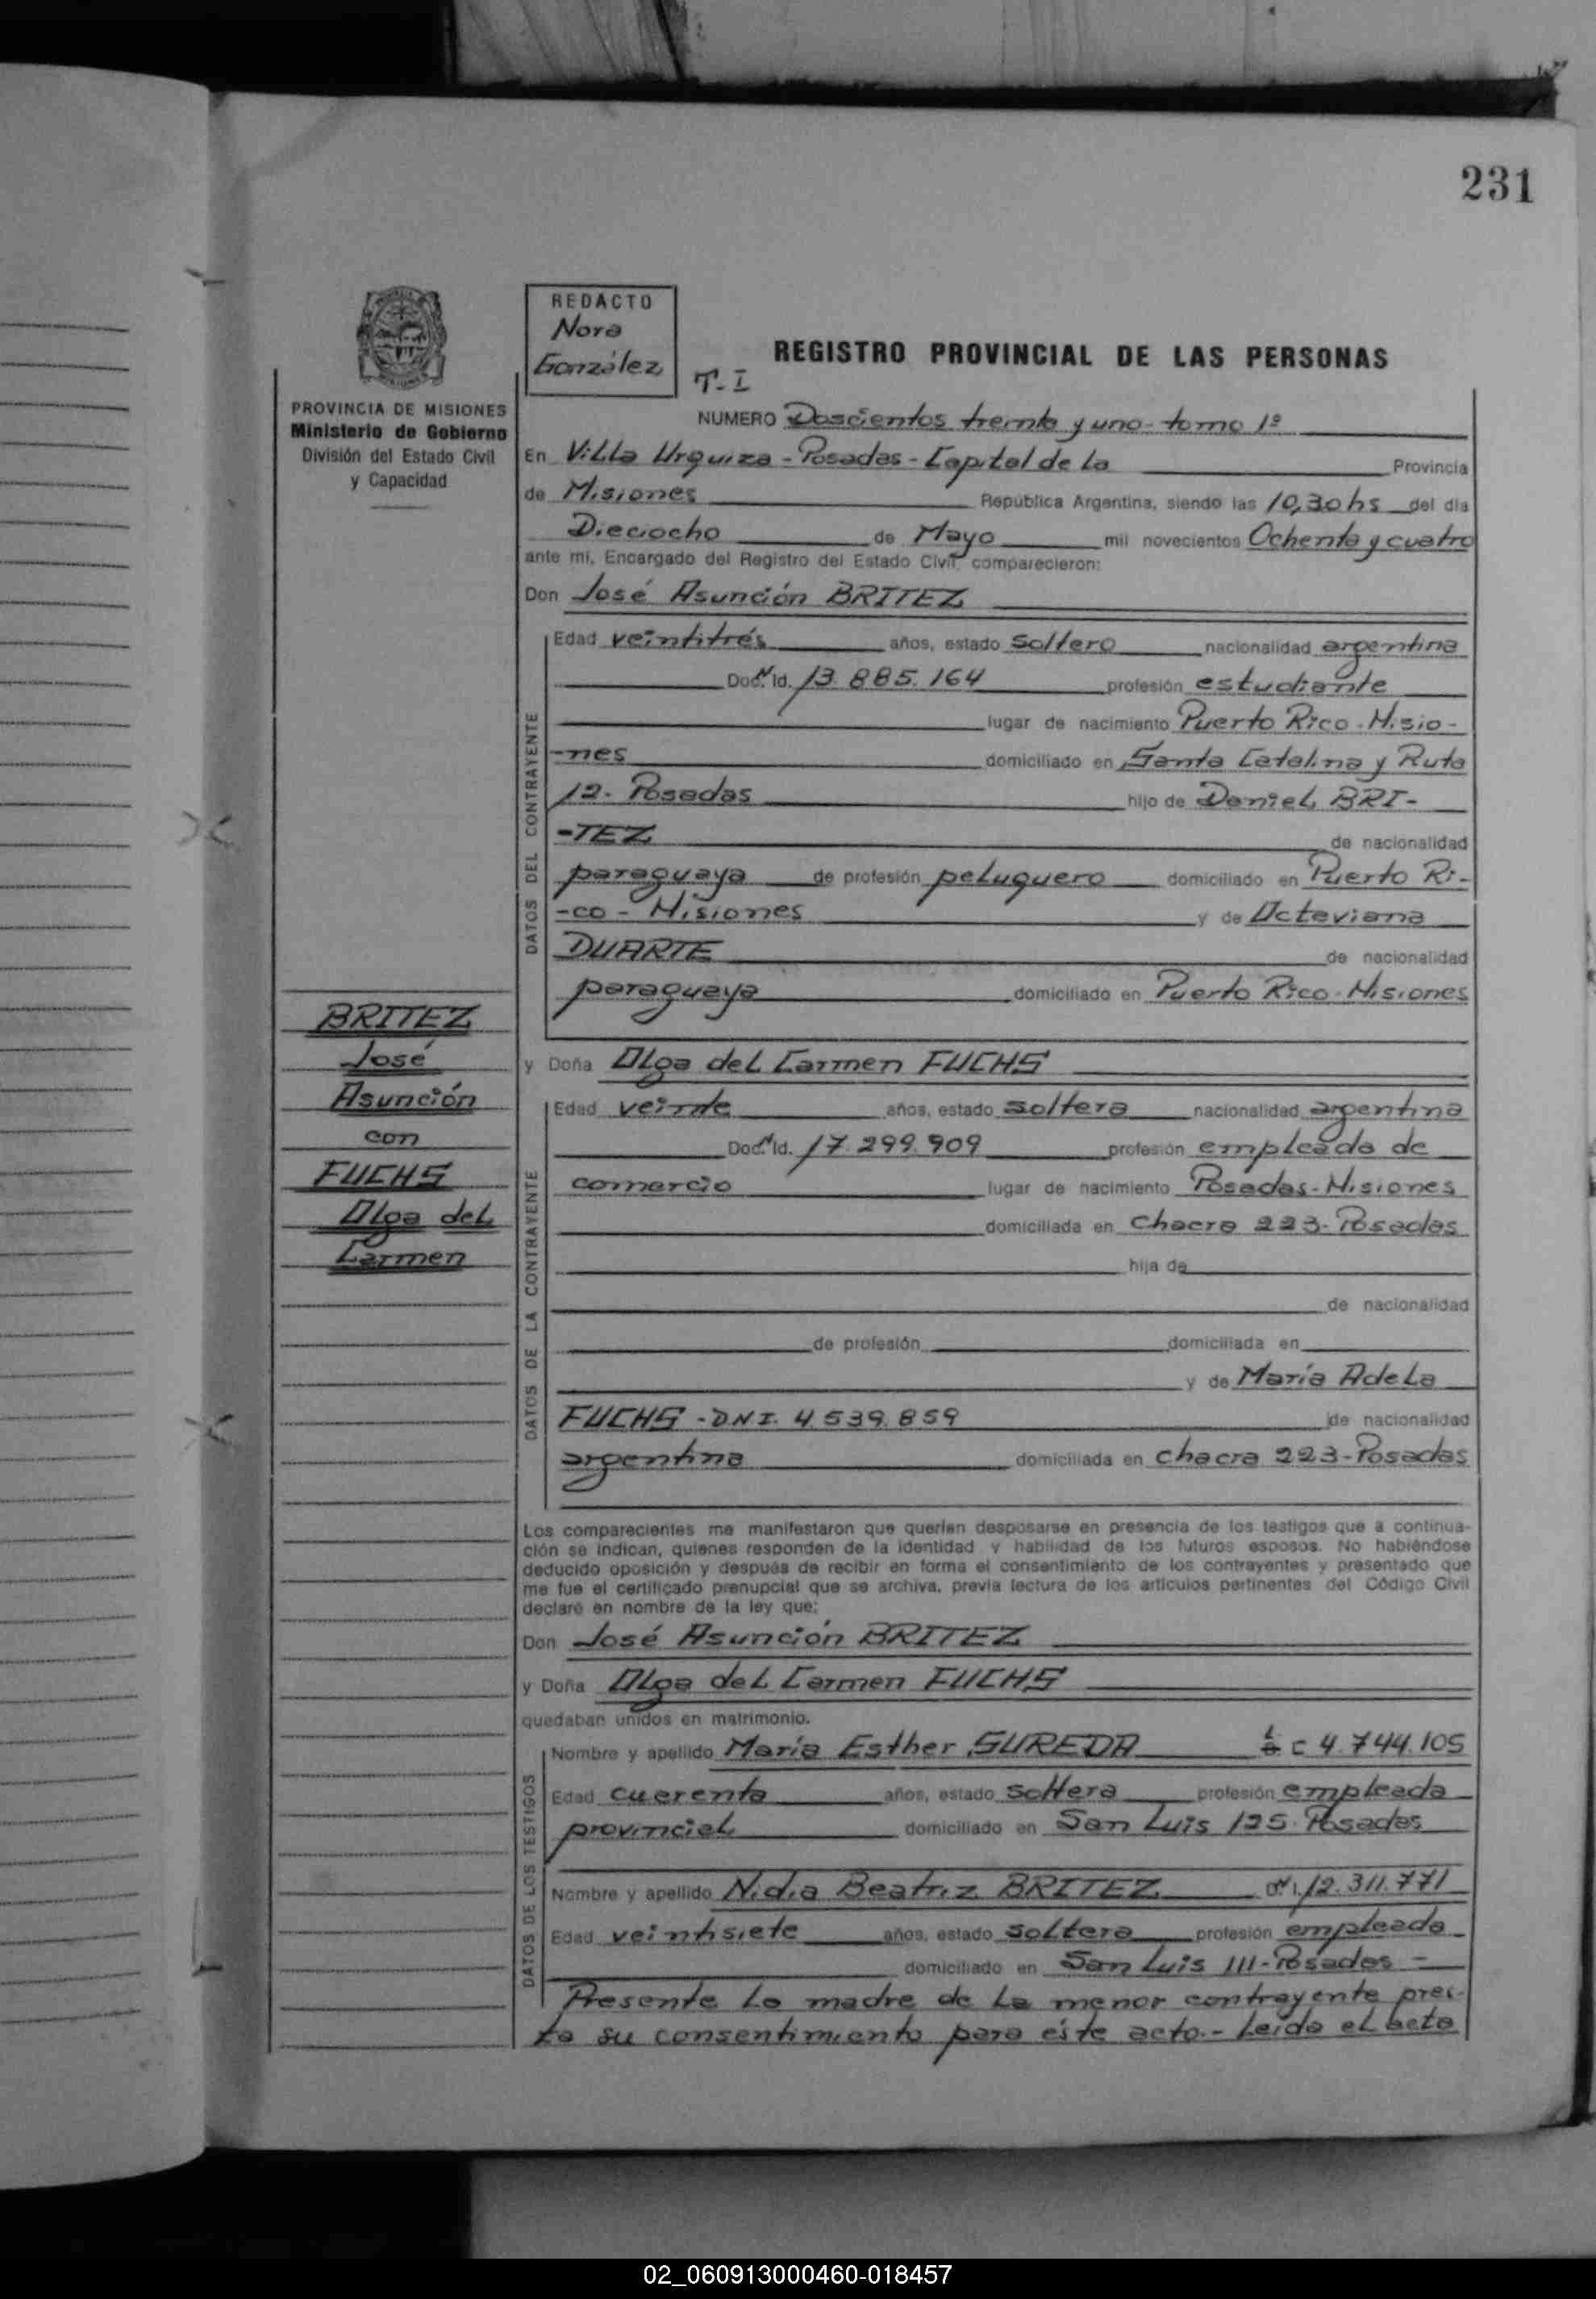 231
REDACTO
Nora
González
T. I
REGISTRO PROVINCIAL DE LAS PERSONAS
PROVINCIA DE MISIONES
Ministerio de Gobierno
División del Estado Civil
y Capacidad
NUMERO Doscientos treinta y uno - tomo 1º
En Villa Urquiza - Posadas - Capital de la Provincia
de Misiones República Argentina, siendo las 10,30 hs del día
Dieciocho de Mayo mil novecientos Ochenta y cuatro
ante mí, Encargado del Registro del Estado Civil, comparecieron:
Don José Asunción BRITEZ
DATOS DEL CONTRAYENTE
Edad veintitrés años, estado soltero nacionalidad argentina
Doc. Id. 13.885.164 profesión estudiante
lugar de nacimiento Puerto Rico - Misio-
-nes domiciliado en Santa Catalina y Ruta
12 - Posadas hijo de Daniel BRI-
-TEZ de nacionalidad
paraguaya de profesión peluquero domiciliado en Puerto Ri-
-co - Misiones y de Octaviana
DUARTE de nacionalidad
paraguaya domiciliado en Puerto Rico - Misiones
BRITEZ
José
Asunción
con
FUCHS
Olga del
Carmen
y Doña Olga del Carmen FUCHS
DATOS DE LA CONTRAYENTE
Edad veinte años, estado soltera nacionalidad argentina
Doc. Id. 17.299.909 profesión empleada de
comercio lugar de nacimiento Posadas - Misiones
domiciliada en Chacra 223 - Posadas
hija de
de nacionalidad
de profesión domiciliada en
y de María Adela
FUCHS - DNI. 4.539.859 de nacionalidad
argentina domiciliada en chacra 223 - Posadas
Los comparecientes me manifestaron que querían desposarse en presencia de los testigos que a continua-
ción se indican, quienes responden de la identidad y habilidad de los futuros esposos. No habiéndose
deducido oposición y después de recibir en forma el consentimiento de los contrayentes y presentado que
me fue el certificado prenupcial que se archiva, previa lectura de los artículos pertinentes del Código Civil
declaré en nombre de la ley que:
Don José Asunción BRITEZ
y Doña Olga del Carmen FUCHS
quedaban unidos en matrimonio.
DATOS DE LOS TESTIGOS
Nombre y apellido María Esther SUREDA L C 4.744.105
Edad cuarenta años, estado soltera profesión empleada
provincial domiciliado en San Luis 125 - Posadas
Nombre y apellido Nidia Beatriz BRITEZ DNI. 12.311.771
Edad veintisiete años, estado soltera profesión empleada
domiciliado en San Luis 111 - Posadas -
Presente la madre de la menor contrayente pres-
ta su consentimiento para éste acto.- Leída el acta
02_060913000460-018457